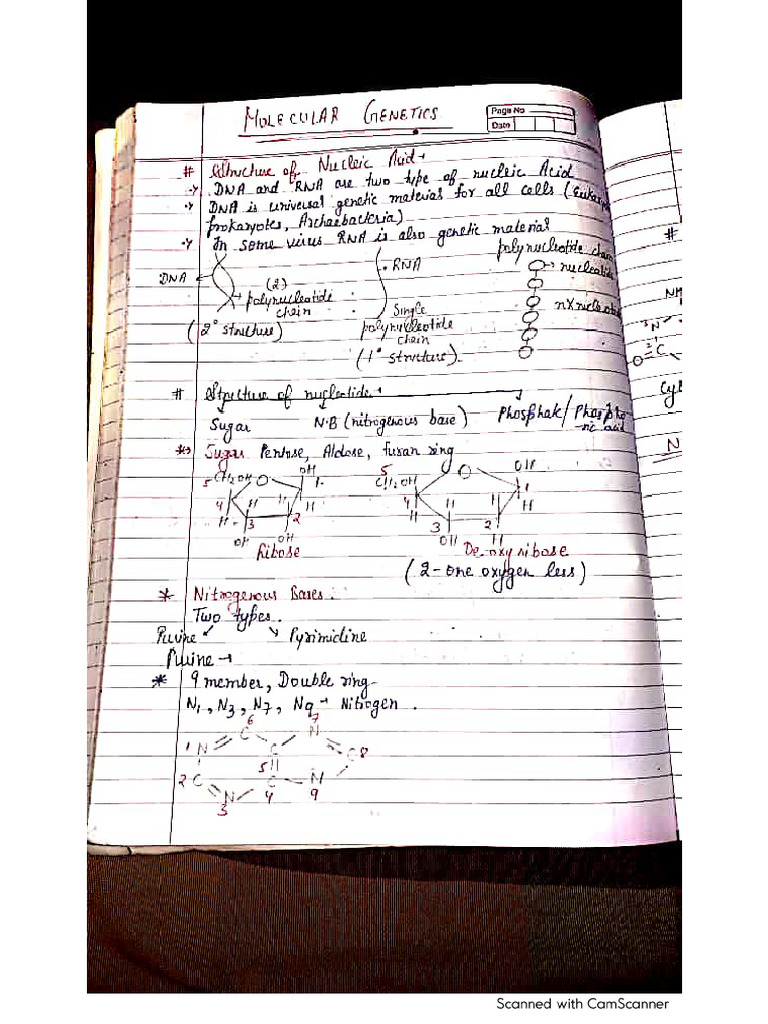 MOLECULAR GENETICS
Page No
Date
# Structure of Nucleic Acid →
→ DNA and RNA are two type of nucleic Acid
→ DNA is universal genetic material for all cells (Eukaryo
prokaryotes, Archaebacteria)
→ In some virus RNA is also genetic material
DNA
(2)
polynucleotide
chain
(2° structure)
RNA
Single
polynucleotide
chain
(1° structure).
polynucleotide chain
nucleotide
nXnucleoti
# Structure of nucleotide →
Sugar
N.B (nitrogenous base)
Phosphate/Phospho
ric acid
Sugar Pentose, Aldose, furan ring
5 CH2OH O OH
4 1
H H H H
3 2
OH OH
Ribose
5
CH2OH O OH
4 1
H H H H
3 2
OH H
De-oxyribose
(2-one oxygen less)
* Nitrogenous Bases.
Two types.
Purine
Pyrimidine
Purine →
* 9 member, Double ring
N1, N3, N7, N9 → Nitrogen.
6 7
C N
1 N C C8
5
2 C C N
N 4 9
3
#
NH
3N
O=C
2 1
Cyt
N
Scanned with CamScanner